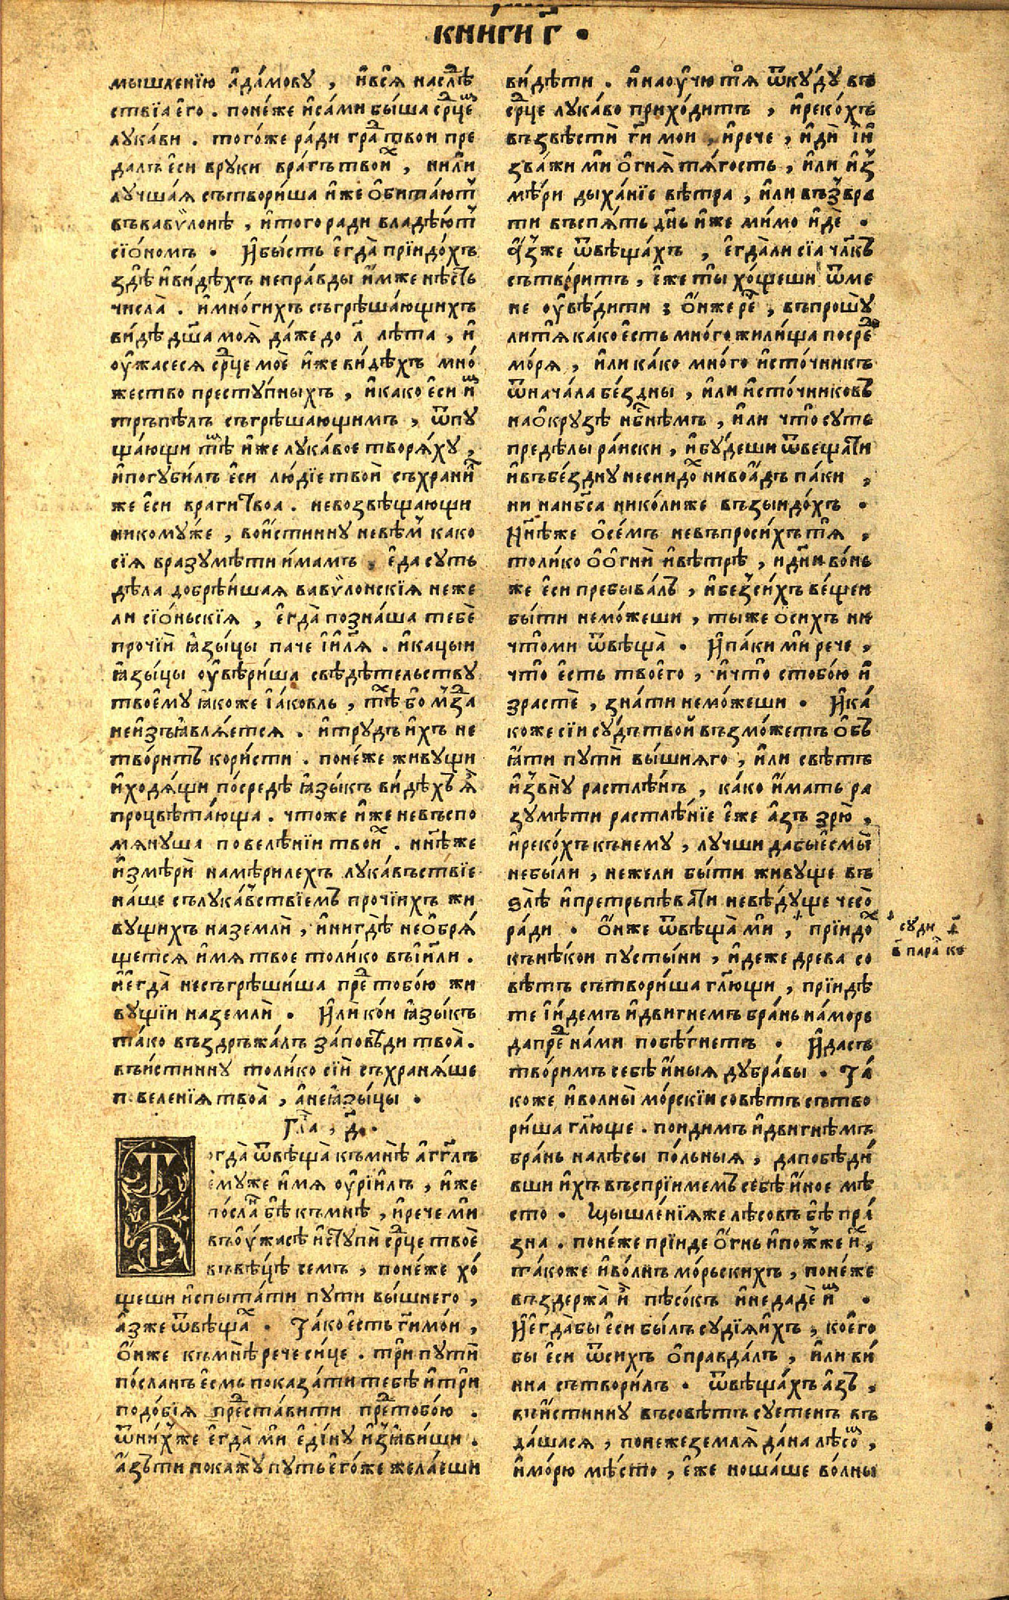 книги г҃ .
мышленїю а҆да́мову , и҆всѧ̀ наслѣ́
ствїа е҆го̀ . поне́же и҆са́ми бы́ша ср҃це
лука́ви . того́же ра́ди гра́ твои пре
далъ є҆сѝ вруки врагъ твои , ни́ли
лу́чшаѧ сътвори́ша и҆́же ѻ҆бита́ютъ
въвавѷло́нѣ , и҆того̀ ради владѣ́ютъ
сїо́номъ . И҆бысть є҆гда̀ прїидо́хъ
здѣ̀ и҆ви́дѣхъ непра́вды и҆́мже нѣ́сть
числа̀ . и҆мно́гихъ съгрѣша́ющихъ
ви́дѣ дш҃а моѧ̀ да́же до л҃ лѣ́та , и҆
оу҆жасесѧ ср҃це моѐ и҆́же ви́дѣхъ мно́
жество престу́пныхъ , и҆ка́ко є҆сѝ и҆
тръпѣ́лъ съгрѣша́ющимъ , ѿпу
ща́ющи тѣ̀ и҆́же лука́вое творѧ́ху ,
и҆погуби́лъ є҆сѝ лю́дїе твоѝ съхрани́
же є҆сѝ врагитвоа . невозвѣща́ющи
никому́же , вои́стинну невѣ́м ка́ко
сїѧ̀ вразумѣ́ти и҆́мамъ . є҆да̀ су́ть
дѣ́ла добрѣ́ишаѧ вавѷло́нскїѧ не́же
ли сїо́ньскїѧ , є҆гда̀ позна́ша тебѐ
про́чїи ꙗ҆зы́цы паче і҆и҃лѧ . и҆ка́цыи
ꙗ҆зы́цы оу҆вѣ́риша свѣдѣ́тельству
твоемꙋ ꙗ҆коже і҆а́ковль , тѣ́ бо мзда
неи҆зъꙗ҆влѧ́етсѧ . и҆тру́дъ и҆́хъ не
твори́тъ кори́сти . поне́же живу́щи
и҆ходѧ́щи посредѣ̀ ꙗ҆зы́къ ви́дѣхъ ѧ҆̀
процвѣта́юща . чтоже и҆́же невъспо
мѧну́ша повелѣ́нїи твои . нн҃ѣже
и҆змѣрѝ намѣрилехъ лука́въствїе
на́ше сълука́вствїемъ про́чїихъ жи
вущихъ наземлѝ , и҆нигдѣ̀ неѻ҆брѧ́
щетсѧ и҆́мѧ твое толи́ко въі҆и҃ли .
и҆є҆гда̀ несъгрѣши́ша пре́ тобо́ю жи
ву́щїи наземлѝ . И҆лѝ ко́и ꙗ҆зы́къ
та́ко въздръжа́лъ за́повѣди твоа̀ .
въи́стинну толи́ко сїѝ съхранѧ́ше
п веленїѧ твоа̀ , а҆неꙗ҆зы́цы .
Гла̀ , д҃ .
Тогда̀ ѿвѣща̀ къмнѣ̀ а҆гг҃лъ
є҆му́же и҆мѧ оу҆рїи́лъ , и҆́же
по́сла бѣ̀ къмнѣ̀ , и҆речѐ ми
въоу҆́жасѣ и҆стꙋпѝ ср҃це твоѐ
въвѣ́цѣ семъ , поне́же хо́
щеши и҆спыта́ти пути вы́шнего ,
а҆́зже ѿвѣща́ . Та́ко є҆сть ги҃мои ,
ѻ҆́ниже къмнѣ̀ рече си́це . три путѝ
по́сланъ є҆смь показа́ти тебѣ̀ и҆трѝ
подо́бїѧ пре́ставити пре́тобо́ю .
ѿни́хже є҆гда̀ ми є҆ди́ну и҆зꙗ҆ви́ши .
а҆́зъти покажу̀ путь є҆го́же жела́еши
ви́дѣти . и҆наоу҆чю́ тѧ ѿку́ду въ
ср҃це лука́во прихо́дитъ , и҆реко́хъ
възвѣстѝ ги҃ мои , и҆рече , и҆дѝ и҆
зва́жи ми ѻ҆гнѧ̀ тѧ́гость , и҆ли и҆з
мѣ́ри дыха́нїе вѣ́тра , и҆ли възвра
ти въспѧ́ть дн҃ь и҆́же мимо и҆́де .
а҆́зже ѿвѣща́хъ , є҆гда́ли сїа чл҃къ
сътвори́тъ , є҆́же ты хо́щеши ѿме
не оу҆вѣ́дити ; ѻ҆́ниже ре́ , въпрошу̀
литѧ̀ ка́ко є҆сть много жили́ща посре́
мо́рѧ , и҆ли ка́ко мно́го и҆сто́чникъ
ѿнача́ла бе́здны , и҆ли и҆сто́чниковъ
наѻ҆кру́зѣ нб҃нѣмъ , и҆ли что̀ суть
предѣ́лы ра́иски , и҆бу́деши ѿвеща́ти
и҆въбе́здну неснидо́ нивоа҆́дъ па́ки ,
ни нанб҃са нико́лиже възыидо́хъ .
Нн҃ѣже ѻ҆се́мъ невъпроси́хъ тѧ̀ ,
толи́ко ѻ҆ѻ҆гнѝ и҆вѣ́трѣ , и҆дн҃и во́нь
же є҆сѝ пребыва́лъ , и҆безси́хъ ве́щеи
бы́ти немо́жеши , ты́же ѻ҆сихъ ни
что́ми ѿвѣща̀ . И҆па́ки ми рече ,
что̀ є҆сть твоего̀ , и҆что̀ стобо́ю и҆
зрастѐ , зна́ти немо́жеши . И҆ка́
коже сїи сꙋдъ твой възмо́жетъ ѻ҆бъ
ꙗ҆ти путѝ вы́шнѧго , и҆ли свѣ́тъ
и҆звну̀ растлѣ́нъ , како и҆́мать ра
зумѣ́ти растлѣ́нїе є҆́же а҆́зъ зрю̀ .
и҆реко́хъ къне́му , лучши дабые́смы
небы́ли , не́жели бы́ти живу́ще въ
злѣ̀ и҆претръпѣва́ти невѣ́дуще чесо̀
ра́ди . ѻ҆́ниже ѿвѣща̀ ми , прїидо́
кънѣ́кои пусты́ни , и҆дѣже древа со
вѣ́тъ сътвори́ша гл҃ющи , прїидѣ
те и҆́идемъ и҆дви́гнемъ бра́нь на́море
дапре́ на́ми побѣ́гнетъ . И҆да́съ
твори́мъ себѣ̀ и҆́ныѧ дубра́вы . Та́
коже и҆волны̀ мо́рскїи совѣ́тъ сътво
ри́ша гл҃юще . поидимъ и҆двигнѣмъ
бра́нь налѣ́сы по́льныѧ , дапобѣди́
вши и҆хъ въспрїи́мемъ себѣ̀ и҆́ное мѣ́
сто . Мышле́нїѧже лѣсо́въ бѣ̀ пра́
зна . поне́же прїиде ѻ҆́гнь и҆пожже и҆̀ ,
та́коже и҆волнъ мо́рьскихъ , поне́же
въздержа̀ и҆̀ пѣсо́къ и҆недадѐ и҆ .
И҆є҆гда̀бы є҆сѝ бы́лъ судїѧ̀и҆хъ , кое́го
бы є҆сѝ ѿсихъ ѻ҆правда́лъ , и҆ли ви́
нна сътвори́лъ . ѿвѣща́хъ а҆́зъ ,
въи́стинну въсовѣ́тъ суетенъ въ
да́шасѧ , поне́жеземлѧ̀ да́на лѣсо́ ,
и҆мо́рю мѣ́сто , є҆́же ноша́ше во́лны
суди
в҃ пара ке